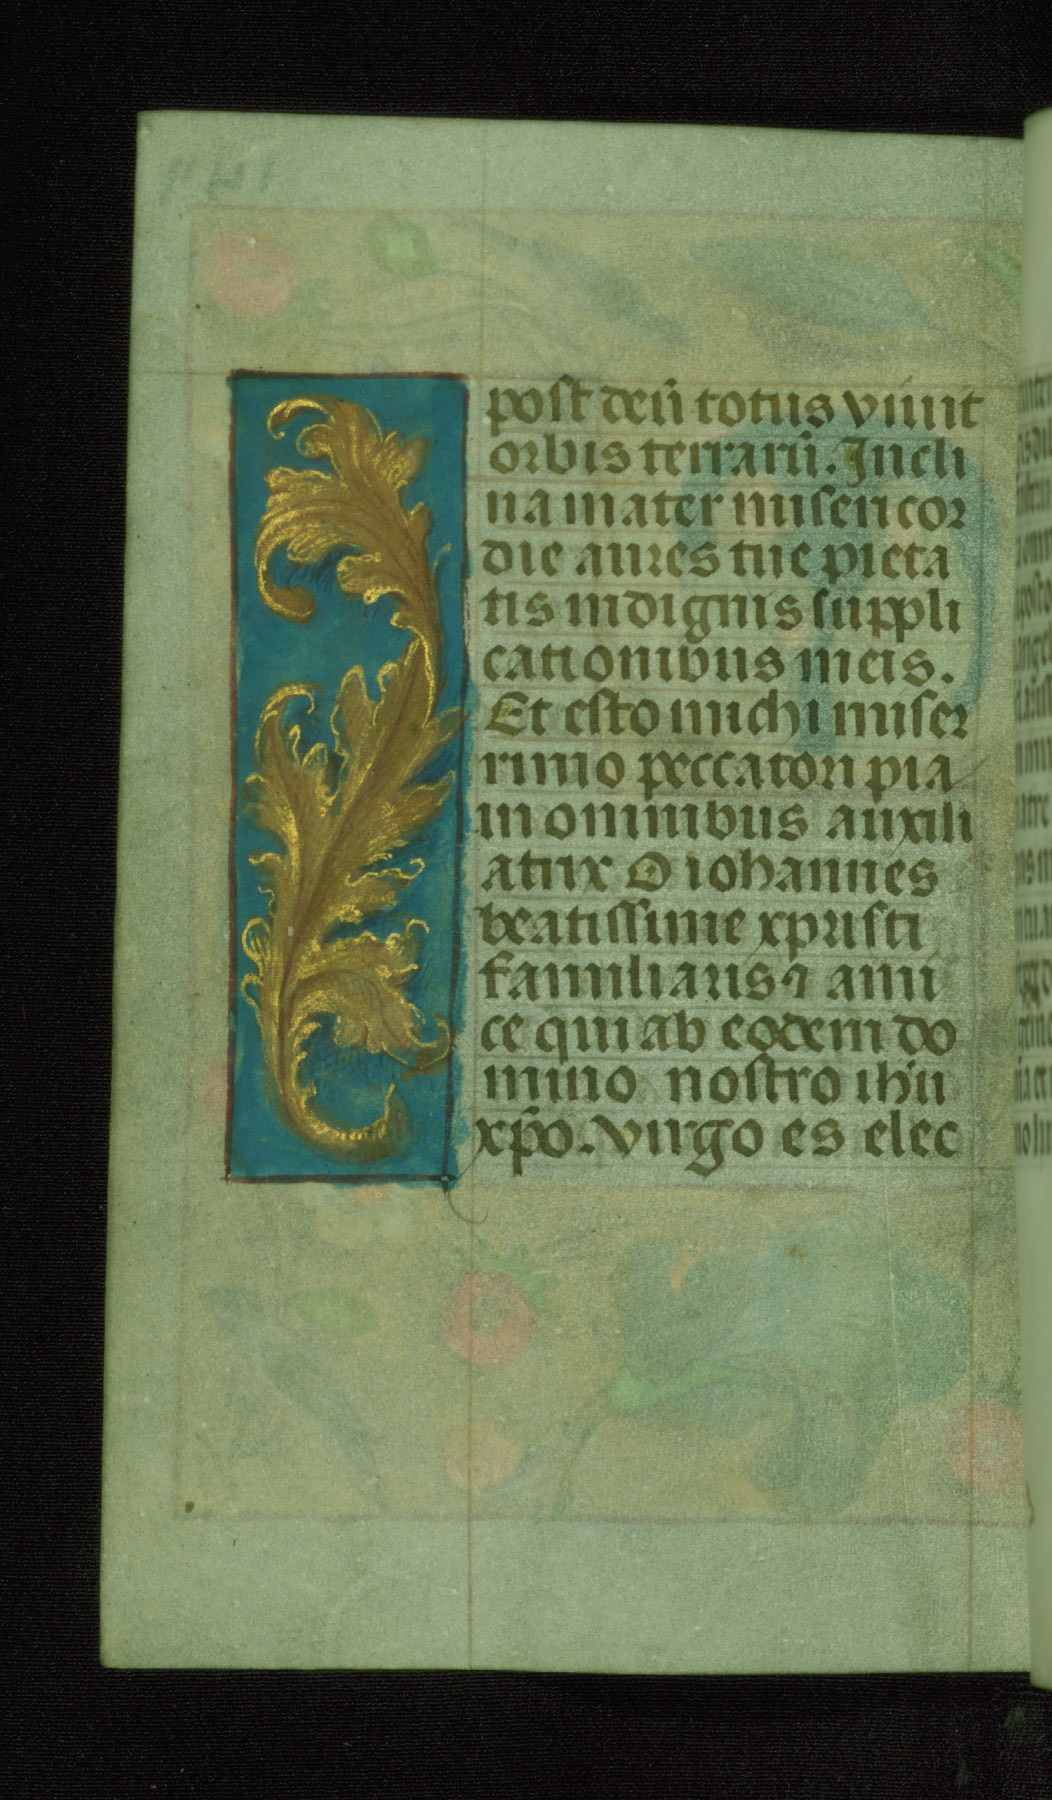 post deū totus viuit
orbis terrarū. Incli
na mater misericor
die aures tue pieta
tis indignis suppli
cationibus meis.
Et esto michi miser
rimo peccatori pia
in omnibus auxili
atrix O iohannes
beatissime xpristi
familiaris ⁊ ami
ce qui ab eodem do
mino nostro ihū
xp̄o. virgo es elec